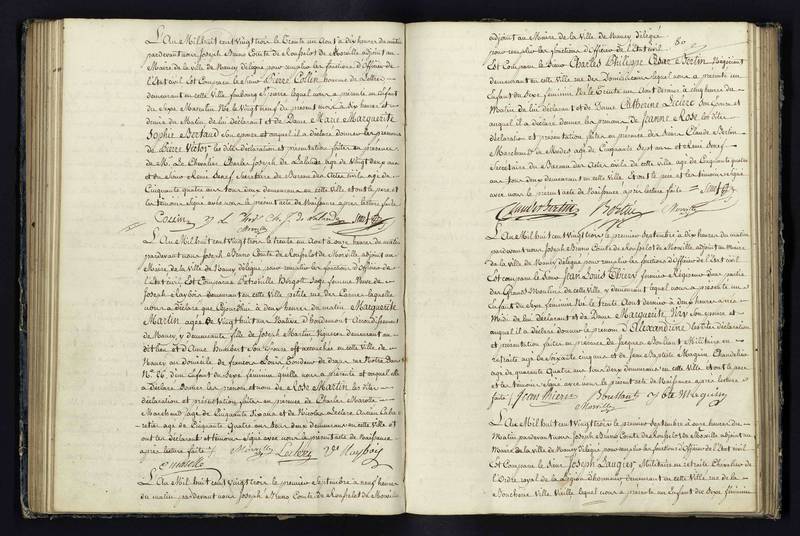 L'An Mil huit cent Vingt trois le Trente un Aout à dix heures du matin
pardevant nous Joseph Bruno Comte de Ronfselot de Morville adjoint au
Maire de la ville de Nancy délégué pour remplir les fonctions d'Officier de
l'Etat civil Est Comparu le Sieur Pierre Collin homme de Lettres
demeurant en cette Ville faubourg St Pierre lequel nous a présenté un Enfant
du Sexe Masculin Né le Vingt neuf du présent mois à dix heures et
demie du Matin, de lui déclarant et de Dame Marie Marguerite
Sophie Bertaud Son épouse et auquel il a déclaré donner les prénoms
de Pierre Victor les dites déclaration et présentation faites en présence
de Mr. Le Chevalier Charles Joseph de Lalande agé de Vingt deux ans
et du Sieur Rémi Senef Secrétaire du Bureau des Actes civils agé de
Cinquante quatre ans tous deux demeurans en cette Ville et ont le père et
les témoins Signé avec nous le présent acte de Naissance après lecture faite
Morville
L'An Mil huit cent Vingt trois le trente un Aout à onze heures du matin
pardevant nous Joseph Bruno Comte de Ronfselot de Morville, adjoint au
Maire de la Ville de Nancy délégué pour remplir les fonctions d'Officier de
l'Etat civil Est Comparue Petronille Sage femme Veuve de
Joseph demeurant en cette Ville petite rue des Carmes laquelle
nous a déclaré que Aujourd'hui à deux heures du matin, Marguerite
Martin agée de Vingt huit ans Native d'houdemont Arrondissement
de Nancy y demeurante fille de Joseph Martin Vigneron demeurant au
dit lieu et d'Anne Humbert Son épouse est accouchée en cette Ville de
Nancy au domicile de François Tondeur de draps rue Notre Dame
No. 26, d'un Enfant du Sexe féminin qu'elle nous a présenté et auquel elle
a déclaré donner les prénom et nom de Rose Martin les dites
déclaration et présentation faites en présence de Charles Marotte
Marchand agé de Cinquante Six ans et de Nicolas Leclerc Ancien
agé de Cinquante Quatre ans tous deux demeurans en cette Ville et
ont les déclarante et témoins Signé avec nous le présent acte de Naissance
après lecture faite Morville Leclerc
Marotte
L'An Mil huit cent Vingt trois le premier Septembre à neuf heures
du matin pardevant nous Joseph Bruno Comte de Ronfselot de Morville
adjoint au Maire de la Ville de Nancy délégué
80
pour remplir les fonctions d'Officier de l'Etat civil
Est Comparu le Sieur Charles Philippe César Bertin Négociant
demeurant en cette Ville rue des Dominicains lequel nous a présenté un
Enfant du Sexe féminin Né le Trente un Aout dernier à cinq heures du
Matin de lui déclarant et de Dame Catherine Leclerc Son épouse et
auquel il a déclaré donner les prénoms de Jeanne Rose les dites
déclaration et présentation faites en présence des Sieurs Claude Bertin
Marchand de Modes agé de Cinquante Sept ans et Rémi Senef
Secrétaire du Bureau des Actes civils de cette Ville agé de Cinquante quatre
ans tous deux demeurans en cette Ville Et ont le père et les témoins signé
avec nous le présent acte de Naissance après lecture faite
Claude Bertin Bertin Morville
L'An Mil huit cent Vingt trois le premier Septembre à dix heures du matin
pardevant nous Joseph Bruno Comte de Ronfselot de Morville, adjoint au Maire
de la Ville de Nancy délégué pour remplir les fonctions d'Officier de l'Etat civil
Est comparu le Sieur Jean Louis Thiery Régisseur
des Grands Moulins de cette Ville y demeurant lequel nous a présenté un
Enfant du Sexe féminin Né le Trente Aout dernier à deux heures après
Midi de lui déclarant et de Dame Marguerite Son épouse et
auquel il a déclaré donner le prénom d'Alexandrine les dites déclaration
et présentation faites en présence de Jacques Militaire en
retraite agé de Soixante cinq ans et de Jean Baptiste Magnin Chandelier
agé de quarante Quatre ans tous deux demeurans en cette Ville et ont le père
et les témoins signé avec nous le présent acte de Naissance après lecture
faite Jean Thiery
Morville
L'An Mil huit cent Vingt trois le premier Septembre à onze heures du
Matin pardevant nous Joseph Bruno Comte de Ronfselot de Morville adjoint au
Maire de la ville de Nancy délégué pour remplir les fonctions d'Officier de l'Etat civil
Est Comparu le Sieur Joseph Laugier Militaire en retraite Chevalier de
l'Ordre royal de la Légion d'honneur demeurant en cette Ville rue de la
Boucherie Ville Vieille lequel nous a présenté un Enfant du Sexe féminin